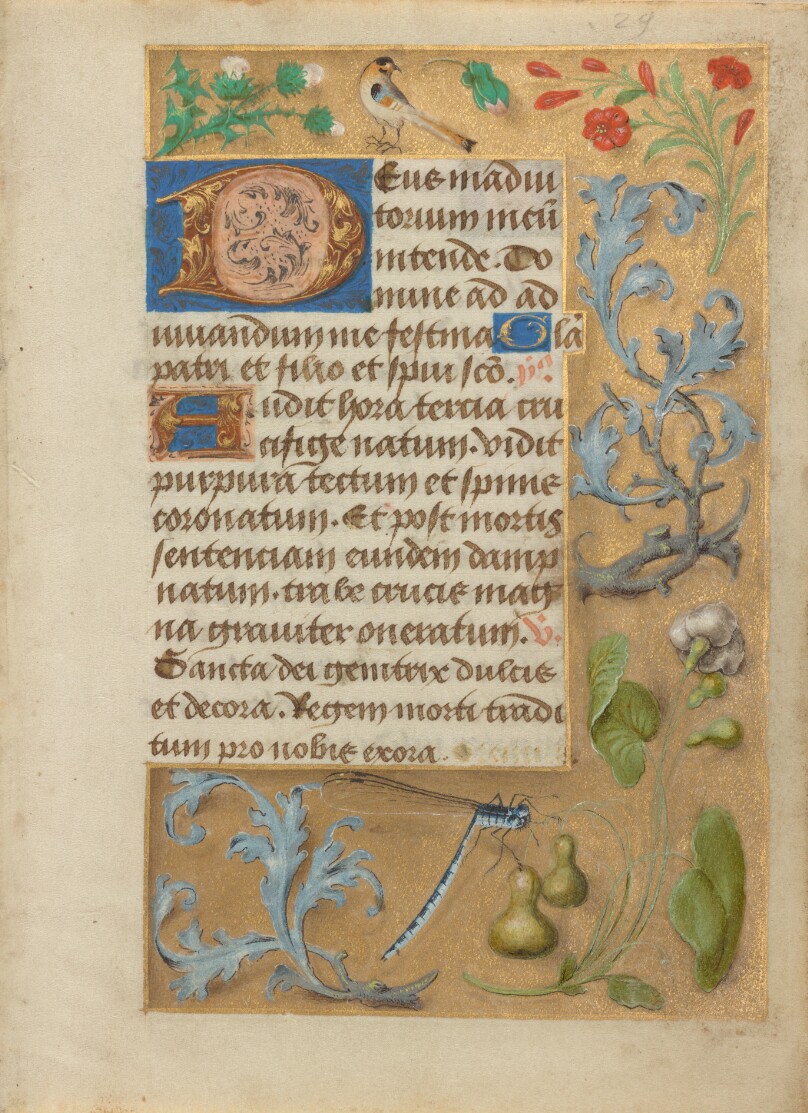 29
Deus in adiu
torium meū
intende. Do
mine ad ad
iuuandum me festina Glā
patri et filio et spiu scō.
Audit hora tercia cru
cifige natum. vidit
purpura tectum et spinis
coronatum. Et post mortis
sentenciam eundem damp
natum. trabe crucis mag
na grauiter oneratum. V.
Sancta dei genitrix dulcis
et decora. Regem morti tradi
tum pro nobis exora.